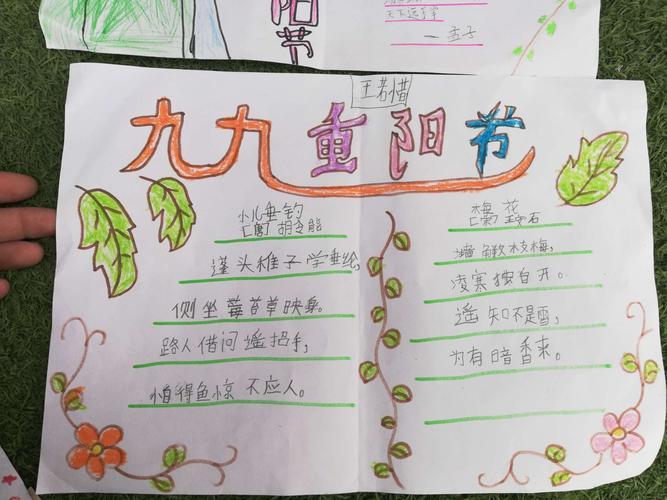 阳节
天下运于掌
—孟子
王若惜
九九重阳节
小儿垂钓
[唐] 胡令能
蓬头稚子学垂纶,
侧坐莓苔草映身。
路人借问遥招手,
怕得鱼惊不应人。
梅花
安石
墙角数枝梅,
凌寒独自开。
遥知不是雪,
为有暗香来。